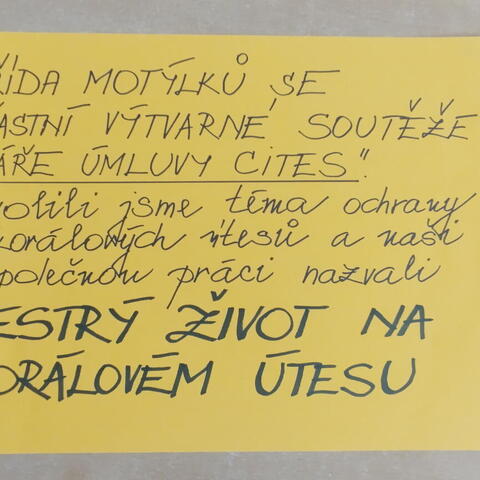 ŘÍDA MOTÝLKŮ SE
ČASTNÍ VÝTVARNÉ SOUTĚŽE
ÁŘE ÚMLUVY CITES".
volili jsme téma ochrany
korálových útesů a naši
společnou práci nazvali
ESTRÝ ŽIVOT NA
ORÁLOVÉM ÚTESU